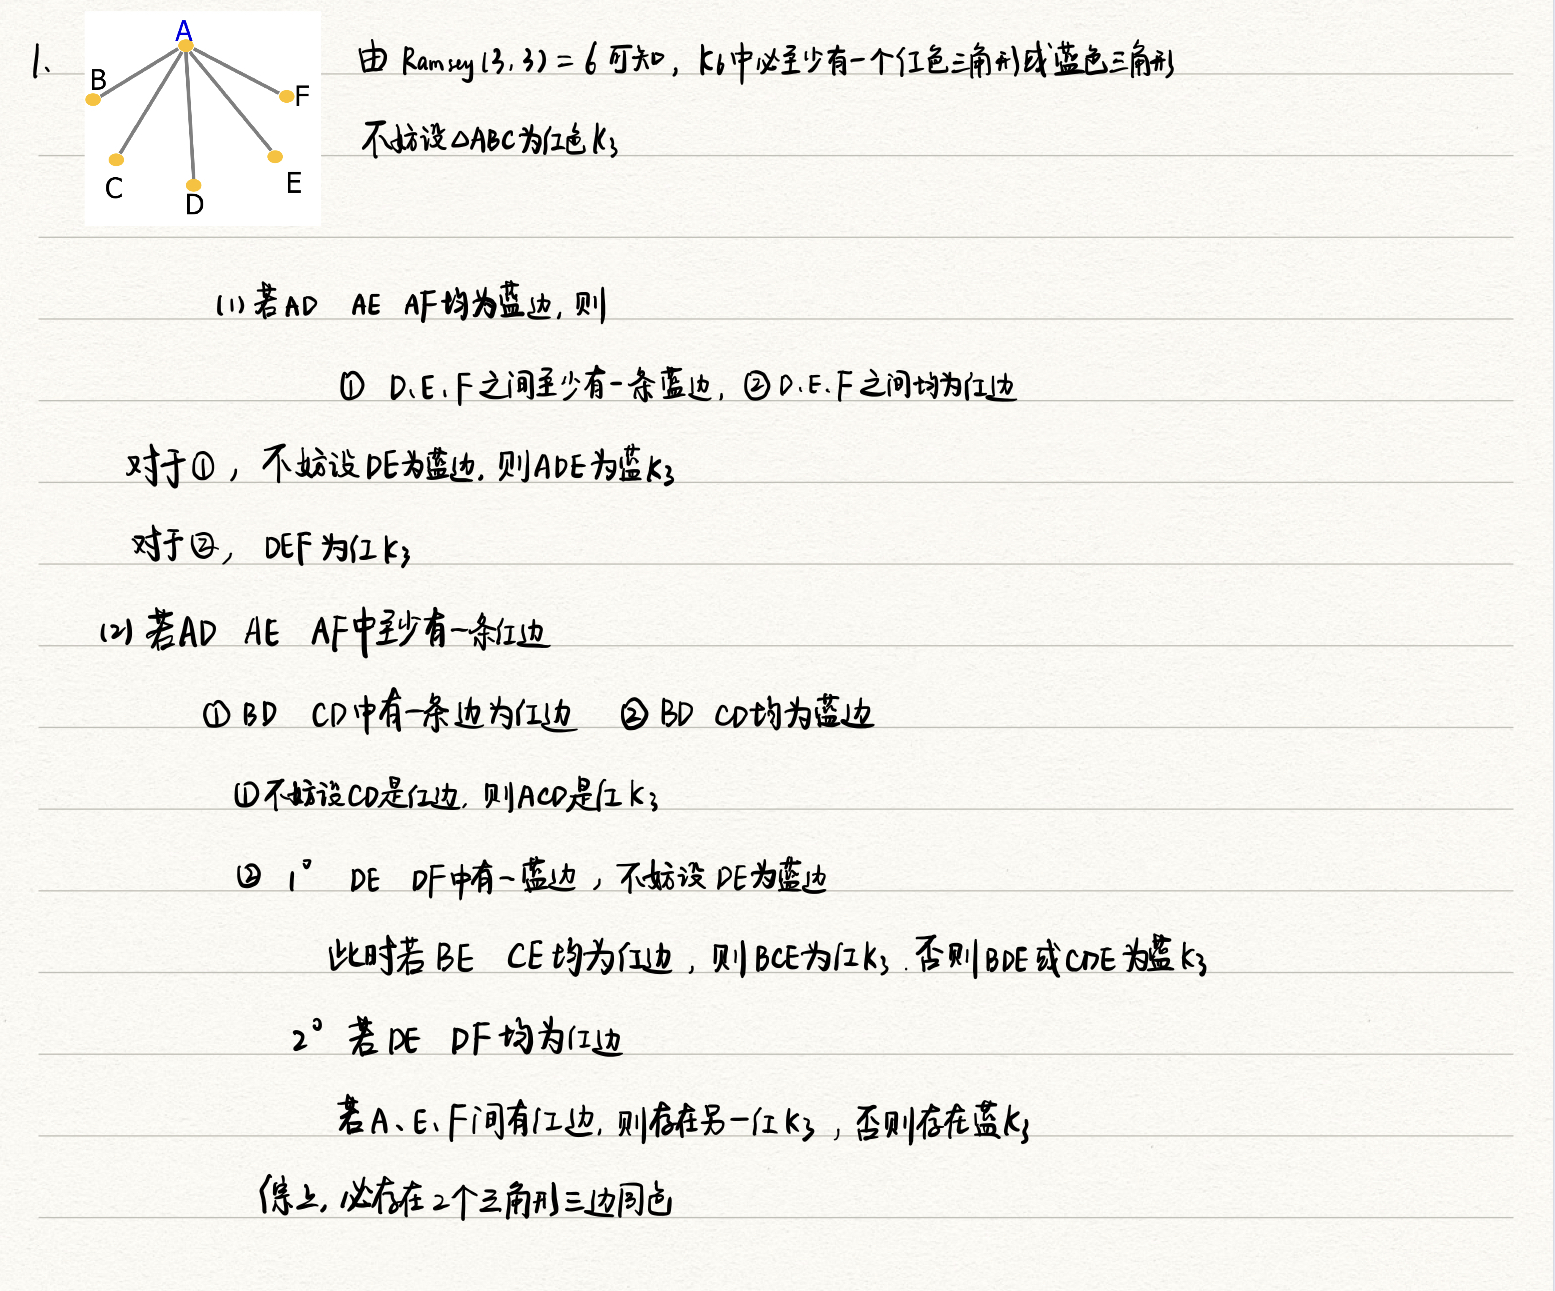 1、
A
B
F
C
E
D
由 Ramsey(3,3)=6 可知，K6中必至少有一个红色三角形或蓝色三角形
不妨设△ABC为红色K3
(1) 若AD AE AF均为蓝边，则
① D、E、F之间至少有一条蓝边，② D、E、F之间均为红边
对于①，不妨设DE为蓝边，则ADE为蓝K3
对于②，DEF为红K3
(2) 若AD AE AF中至少有一条红边
① BD CD中有一条边为红边 ② BD CD均为蓝边
①不妨设CD是红边，则ACD是红K3
② 1° DE DF中有一蓝边，不妨设DE为蓝边
此时若BE CE均为红边，则BCE为红K3．否则BDE或CDE为蓝K3
2° 若DE DF均为红边
若A、E、F间有红边，则存在另一红K3，否则存在蓝K3
综上，必存在2个三角形三边同色